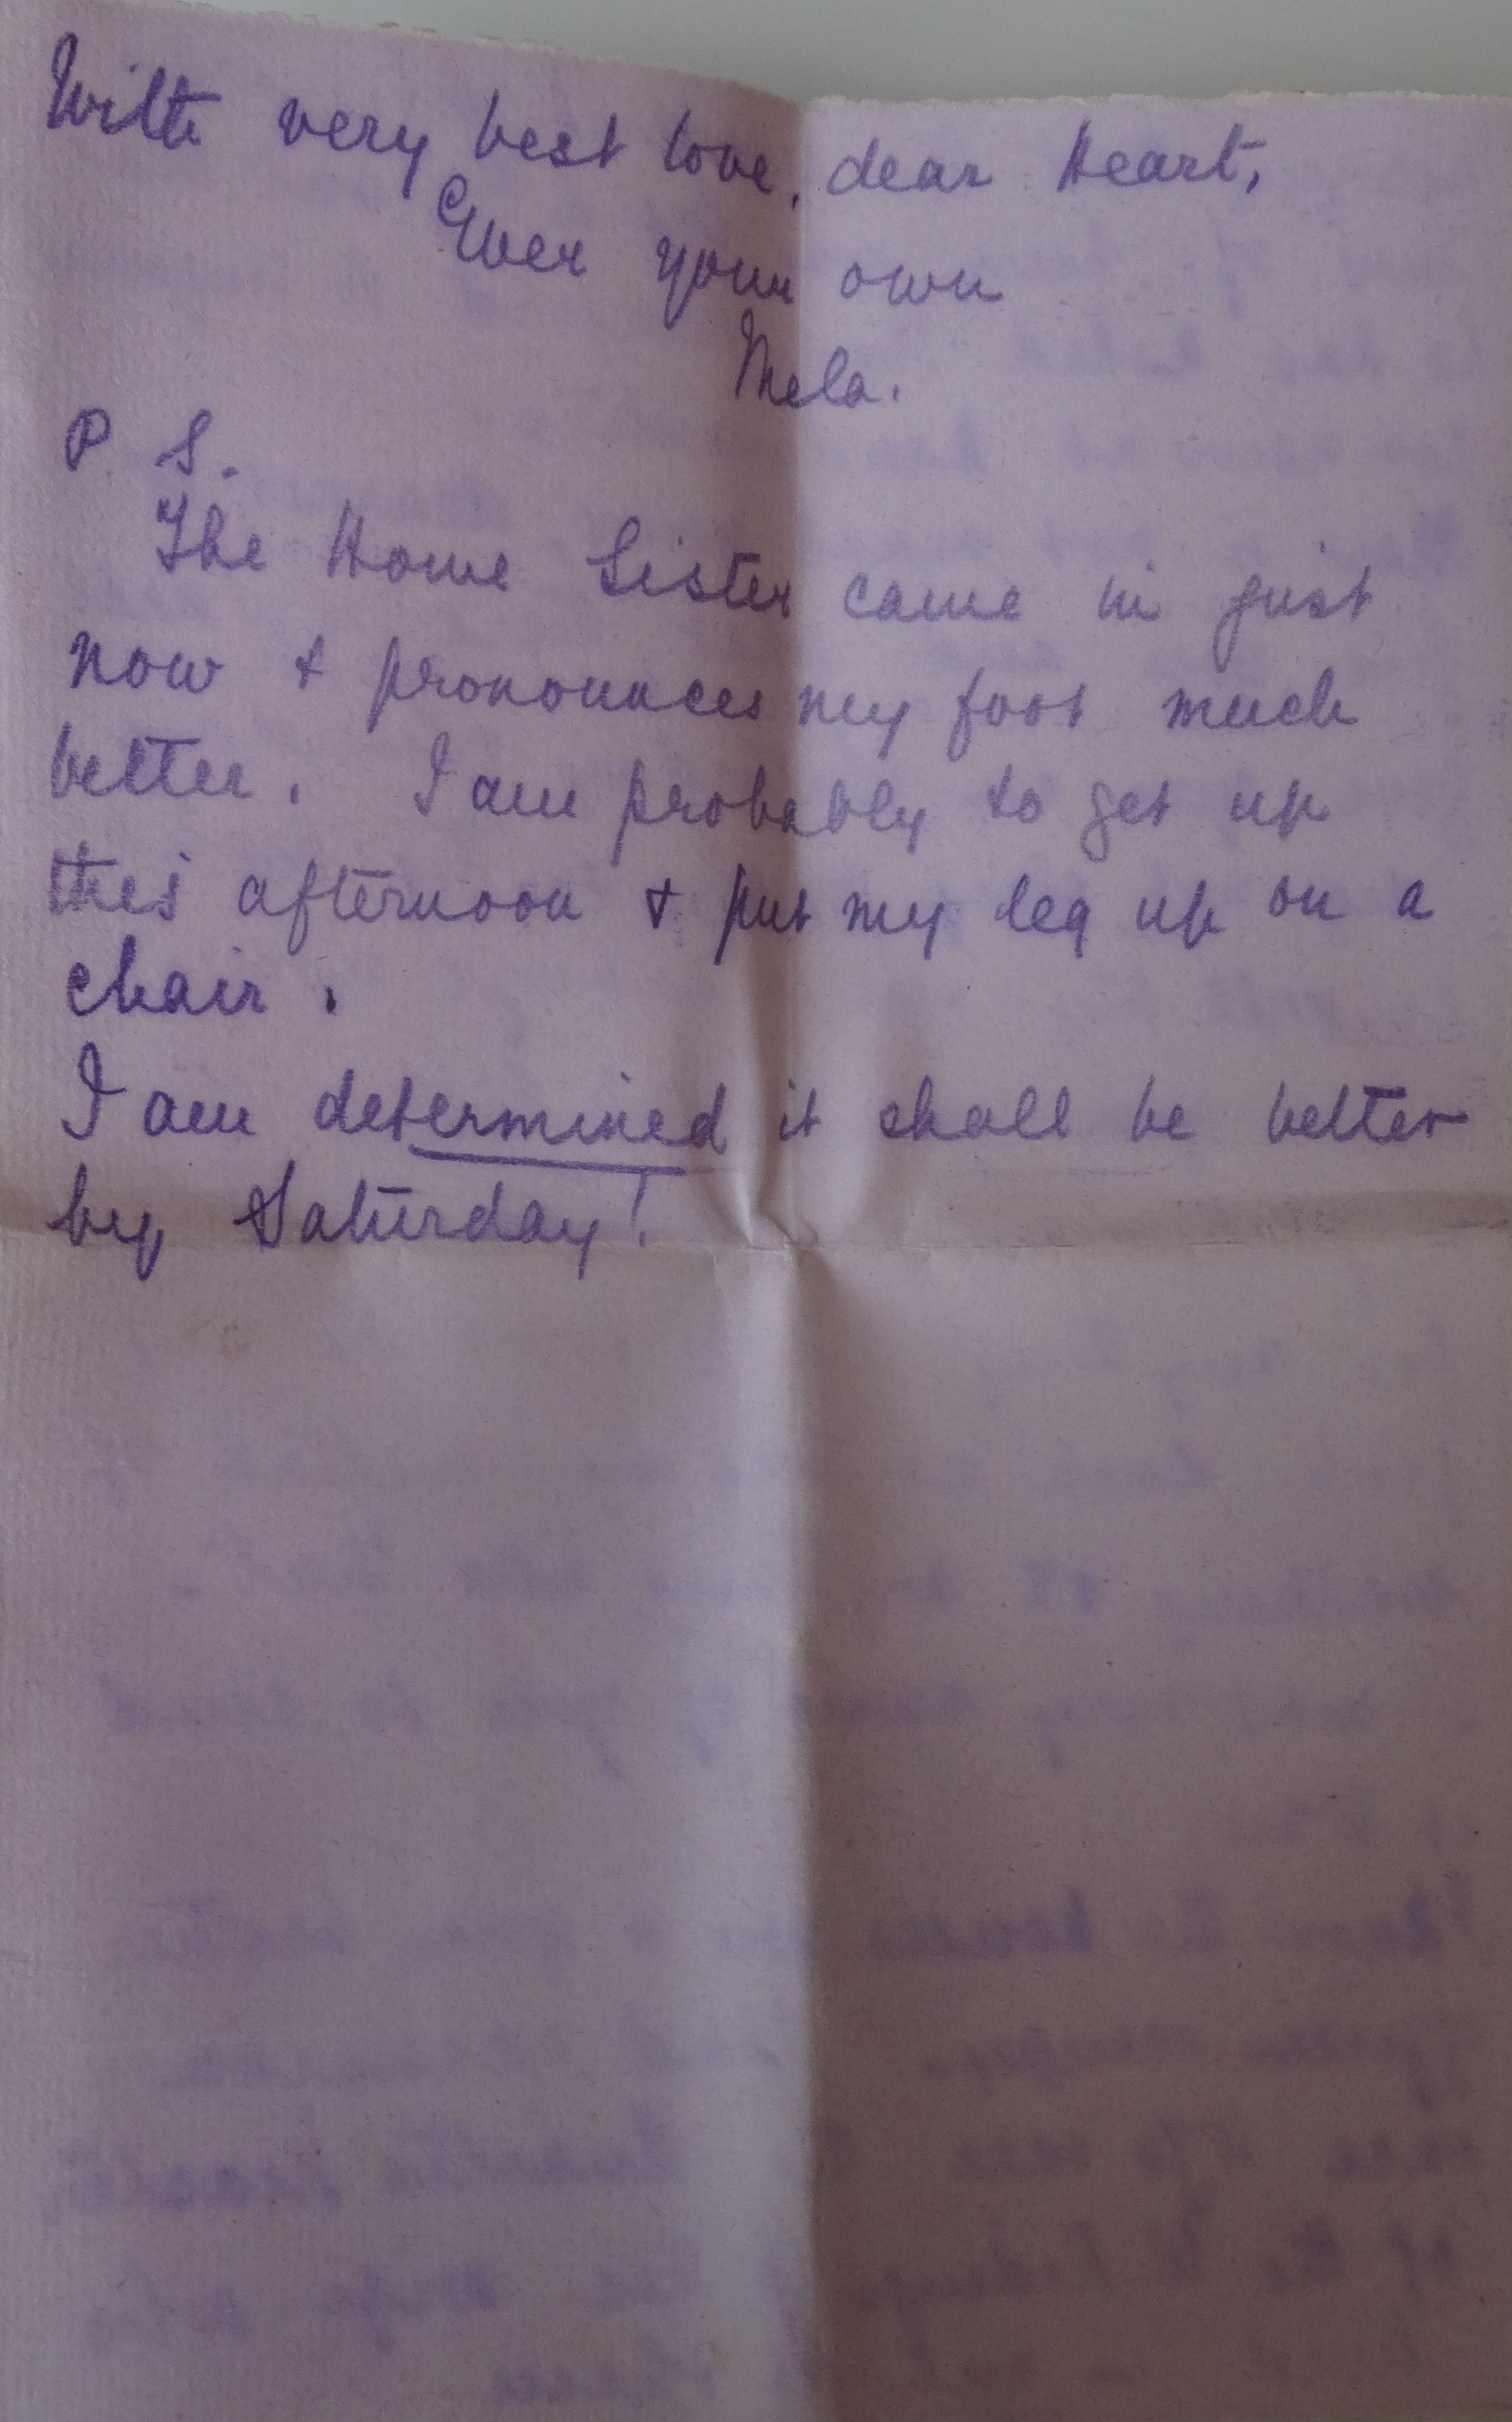 With very best love, dear Heart,
Ever your own
Mela.
P. S.
The Home Sister came in just
now & pronounces my foot much
better. I am probably to get up
this afternoon & put my leg up on a
chair.
I am determined it shall be better
by Saturday!